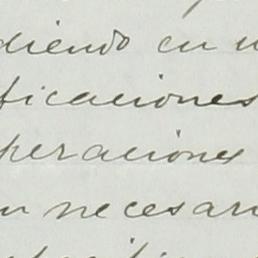 diendo en u
ficaciones
peraciones
en necesari